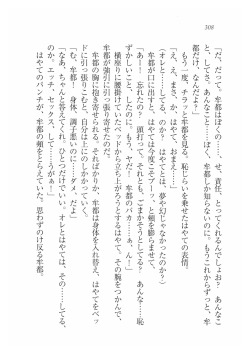 308
「だ、だって。牟都はぼくの……せ、責任、とってくれるんでしょお? あんなこ
と、して。さ、あんなこと……ぼく、牟都しか知らないのに。もうこれからずっと、牟
都だけ、なんだから、ね」
もう一度、チラッと牟都を見る、恥じらいを乗せたはやての表情。
「え、ええ、まさ、か、はやて、おまえ……」
「オレと……してるの、か? まさか、とは、夢や幻じゃなかったのか?)
牟都が口に出すと、はやては今度こそブーッと頬を膨らませて、
「あー! 忘れたの? 頭打って、それとも、してるときあんまり? あんな……恥
ずかしいこと、したのに! もう、ヤだ! 牟都のバカ……ぁ、ん!」
横座りに腰掛けていたベッドから立ち上がろうとするはやて、その腕をつかんで、
牟都が強引に引っ張り寄せたのだ。
牟都の胸に抱き寄せられる、そればかりか、牟都は身体を入れ替え、はやてをベッ
ドに引っ張りこむと、自分は上にのしかかっていく。
「む、牟都! 身体、調子悪いのに……ダメ、だよ」
「なあ、ちゃんと答えてくれ、ひとつだけでいい。オレとはやては、その……してる
のか、エッチ、セックス、して……うがぁ!」
はやてのパンチが、牟都の頬をとらえていた。思わずのけ反る牟都。